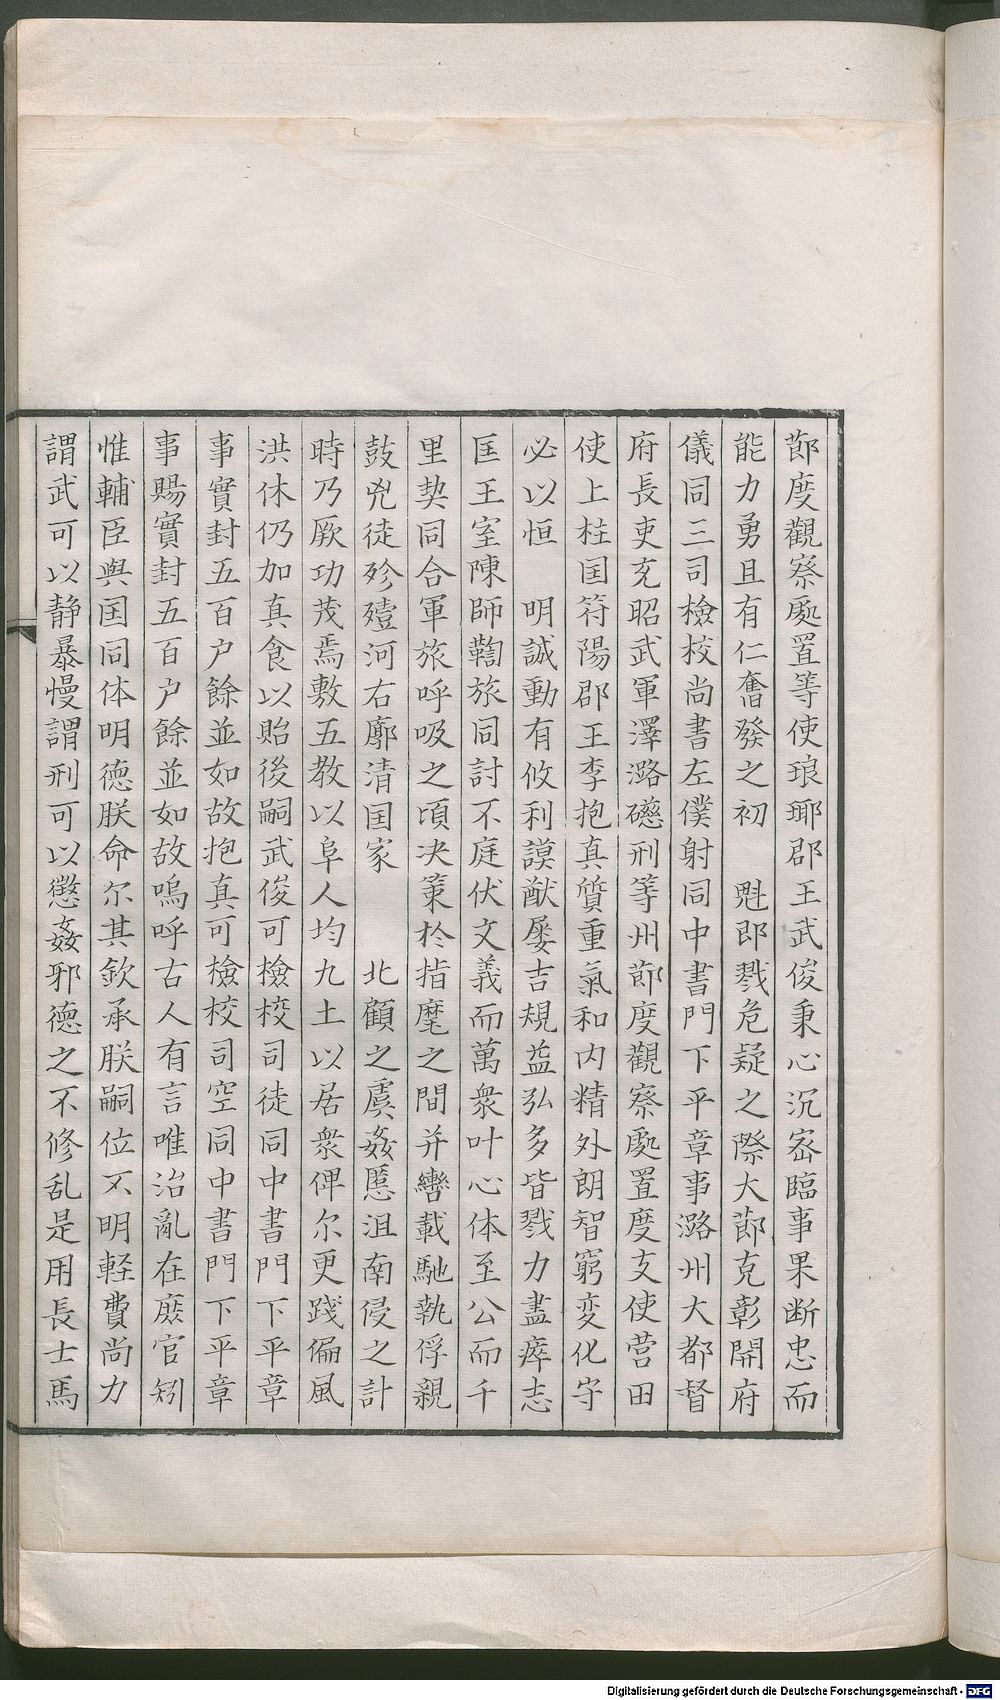 莭度觀察處置等使琅瑘郡王武俊秉心沉宻臨事果断忠而
能力勇且有仁奮發之初　魁郎戮危疑之際大莭克彰開府
儀同三司檢校尚書左僕射同中書門下平章事潞州大都督
府長吏充昭武軍澤潞礠刑等州莭度觀察處置度支使营田
使上柱国符陽郡王李抱真質重氣和内精外朗智窮変化守
必以恒　明誠動有攸利謨猷屡吉規益弘多皆戮力盡瘁志
匡王室陳師鞫旅同討不庭伏文義而萬衆叶心体至公而千
里契同合軍旅呼吸之頃决策於指麾之間并轡載馳執俘親
鼓兇徒殄殪河右廓清国家　　北顧之虞姦慝沮南侵之計
時乃厥功茂焉敷五教以阜人均九土以居衆俾尔更踐徧風
洪休仍加真食以貽後嗣武俊可檢校司徒同中書門下平章
事實封五百户餘並如故抱真可檢校司空同中書門下平章
事賜實封五百户餘並如故嗚呼古人有言唯治亂在庶官矧
惟輔臣與国同体明德朕命尔其欽承朕嗣位不明軽費尚力
謂武可以静暴慢謂刑可以懲姦邪德之不修乱是用長士馬
Digitalisierung gefördert durch die Deutsche Forschungsgemeinschaft - DFG